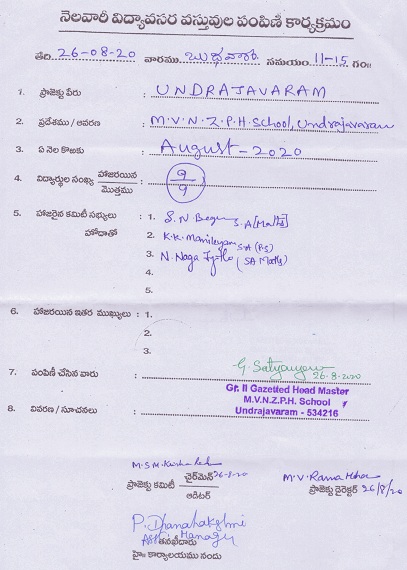 నెలవారీ విద్యావసర వస్తువుల పంపిణి కార్యక్రమం
తేది 26-08-20 వారము బుధవారం సమయం 11-15 గం॥
1. ప్రాజెక్టు పేరు : UNDRAJAVARAM
2. ప్రదేశము / ఆవరణ : M.V.N.Z.P.H.School, Undrajavaram
3. ఏ నెల కొఱకు : August-2020
4. విద్యార్థుల సంఖ్య హాజరయిన / మొత్తము : 9/9
5. హాజరైన కమిటీ సభ్యులు : 1. S.N. Begum S.A [Maths]
హోదాతో 2. K.K. S.A (P.S)
3. N. Naga Jyothi (SA Maths)
4.
5.
6. హాజరయిన ఇతర ముఖ్యులు : 1.
2.
3.
7. పంపిణీ చేసిన వారు : G. 26-8-2020
Gr. II Gazetted Head Master
M.V.N.Z.P.H. School
8. వివరణ / సూచనలు : Undrajavaram - 534216
M.S.M. 26-8-20
ప్రాజెక్టు కమిటీ ఛైర్‌మెన్ / ఆడిటర్
M.V. Rama 26/8/20
ప్రాజెక్టు డైరెక్టర్
P. Dhanalakshmi
Asst Manager
తనఖీదారు
హై॥ కార్యాలయము నందు